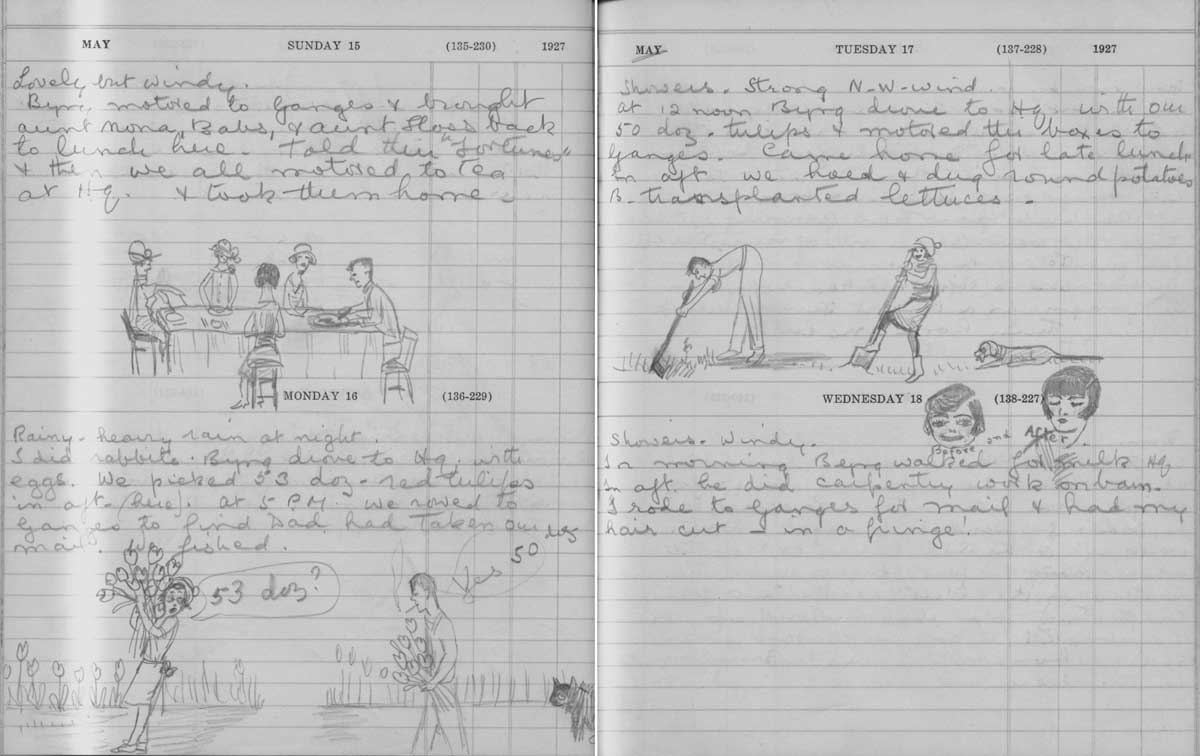 MAY SUNDAY 15 (135-230) 1927
Lovely but windy.
Byng motored to Ganges & brought
aunt Nona, Babs, & aunt Floss back
to lunch here. Told their "fortunes"
& then we all motored to tea
at Hq. & took them home.
MONDAY 16 (136-229)
Rainy - heavy rain at night.
I did rabbits. Byng drove to Hq. with
eggs. We picked 53 doz - red tulips
in aft. (here). at 5 P.M. we rowed to
Ganges to find Dad had taken our
mail. We fished.
53 doz?
Yes 50 doz
MAY TUESDAY 17 (137-228) 1927
Showers. Strong N-W-wind.
at 12 noon Byng drove to Hq. with our
50 doz. tulips & motored the boxes to
Ganges. Came home for late lunch
In aft we hoed & dug round potatoes
B- transplanted lettuces.
WEDNESDAY 18 (138-227)
Before and After.
Showers. Windy.
In morning Byng walked for milk Hq
In aft. he did carpentry work on barn.
I rode to Ganges for mail & had my
hair cut - in a fringe!